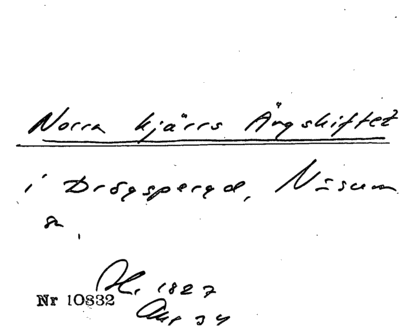 Norra kjärrs Ängskiftet
i Drögsperyd, Näsum
sn.
Nr 10832 1827
34